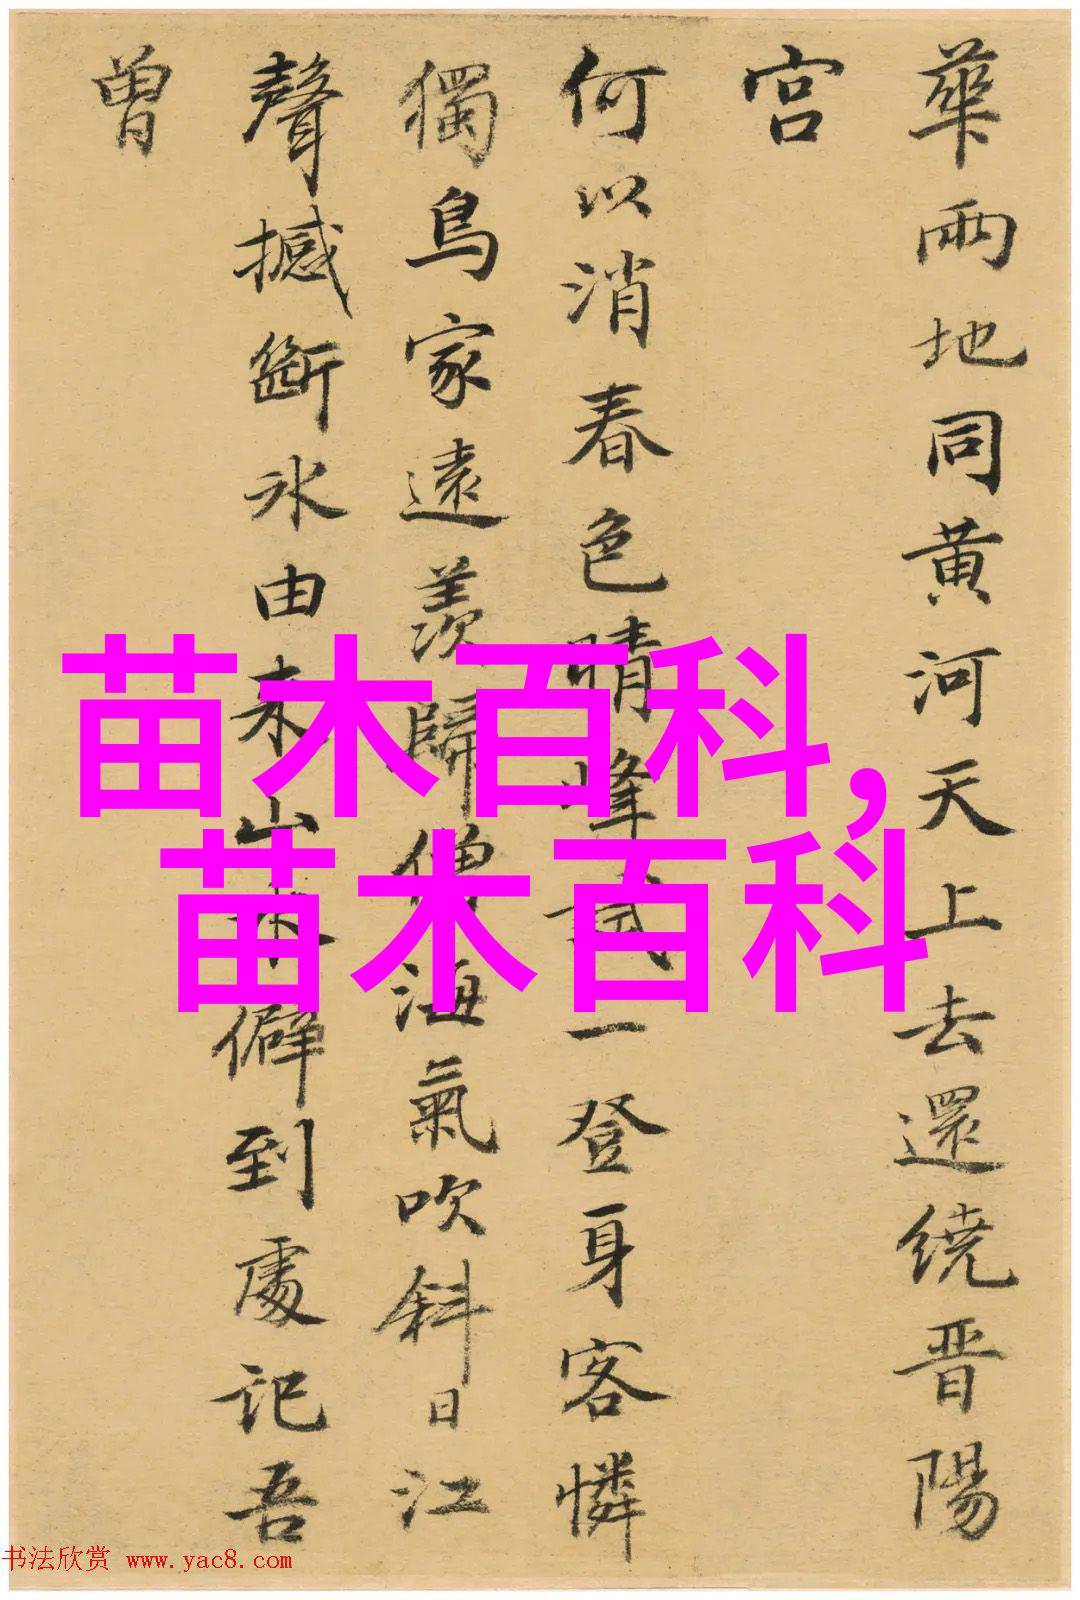 華兩地同黄河天上去還繞晋陽
宫
何以消春色晴峰試一登身客憐
獨鳥家遠羨歸僧海氣吹斜日江
聲撼斷冰由来山水僻到處記吾
曽
苗木百科,
苗木百科
书法欣赏 www.yac8.com